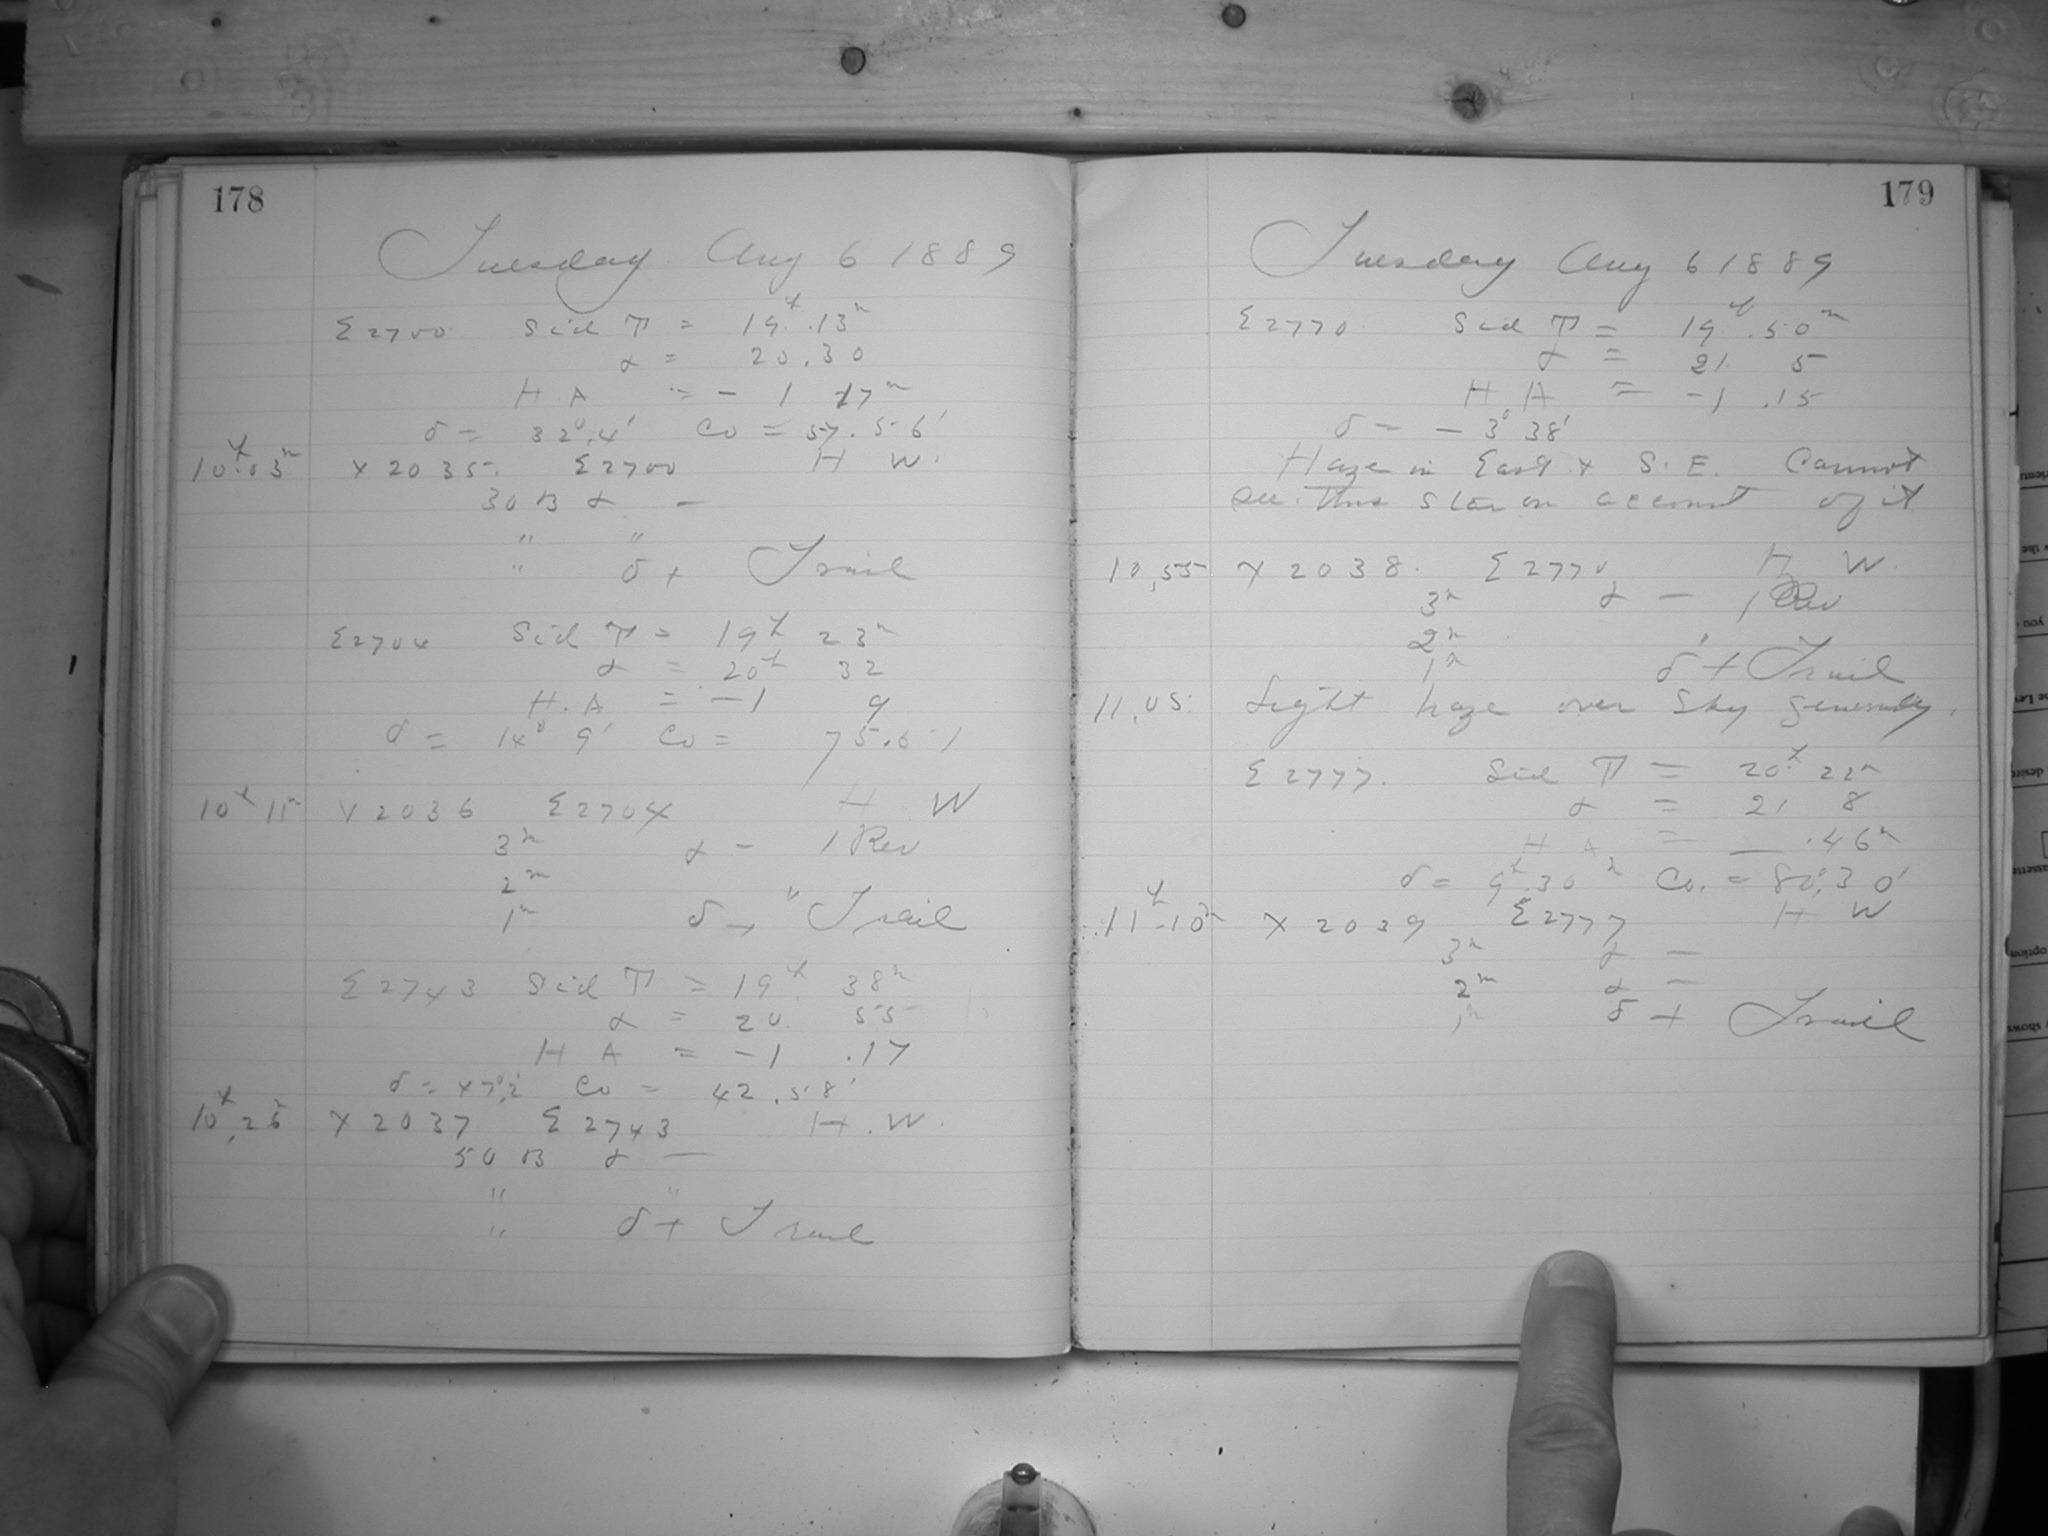 178
Tuesday Aug 6 1889
Σ2700 Sid T = 19h.13m
α = 20.30
H A = - 1 17m
δ = 32°.4' Co = 57.56'
10h.03m X 2035. Σ2700 H W.
30 B α -
" "
" δ + Trail
Σ2704 Sid T = 19h 23m
α = 20h 32
H.A = -1 9
δ = 14° 9' Co = 75.51
10h 11m X 2036 Σ2704 H W
3m α - 1 Rev
2m "
1m δ + Trail
Σ2743 Sid T = 19h 38m
α = 20 55
H A = -1 .17
δ = 47°.2' Co = 42.58'
10h.26m X 2037 Σ2743 H.W.
50 B α -
" "
" δ + Trail
179
Tuesday Aug 6 1889
Σ2770. Sid T = 19h.50m
α = 21 5
H A = -1 .15
δ = - 3° 38'
Haze in East + S.E. Cannot
see this star on account of it
10.55 X 2038. Σ2770 H W.
3m α - 1 Rev
2m
1m δ + Trail
11.05 Light haze over sky generally.
Σ2777. Sid T = 20h 22m
α = 21 8
H A = - .46m
δ = 9°.30' Co. = 80°.30'
11h.10m X 2039 Σ2777 H W
3m α -
2m α -
1m δ + Trail